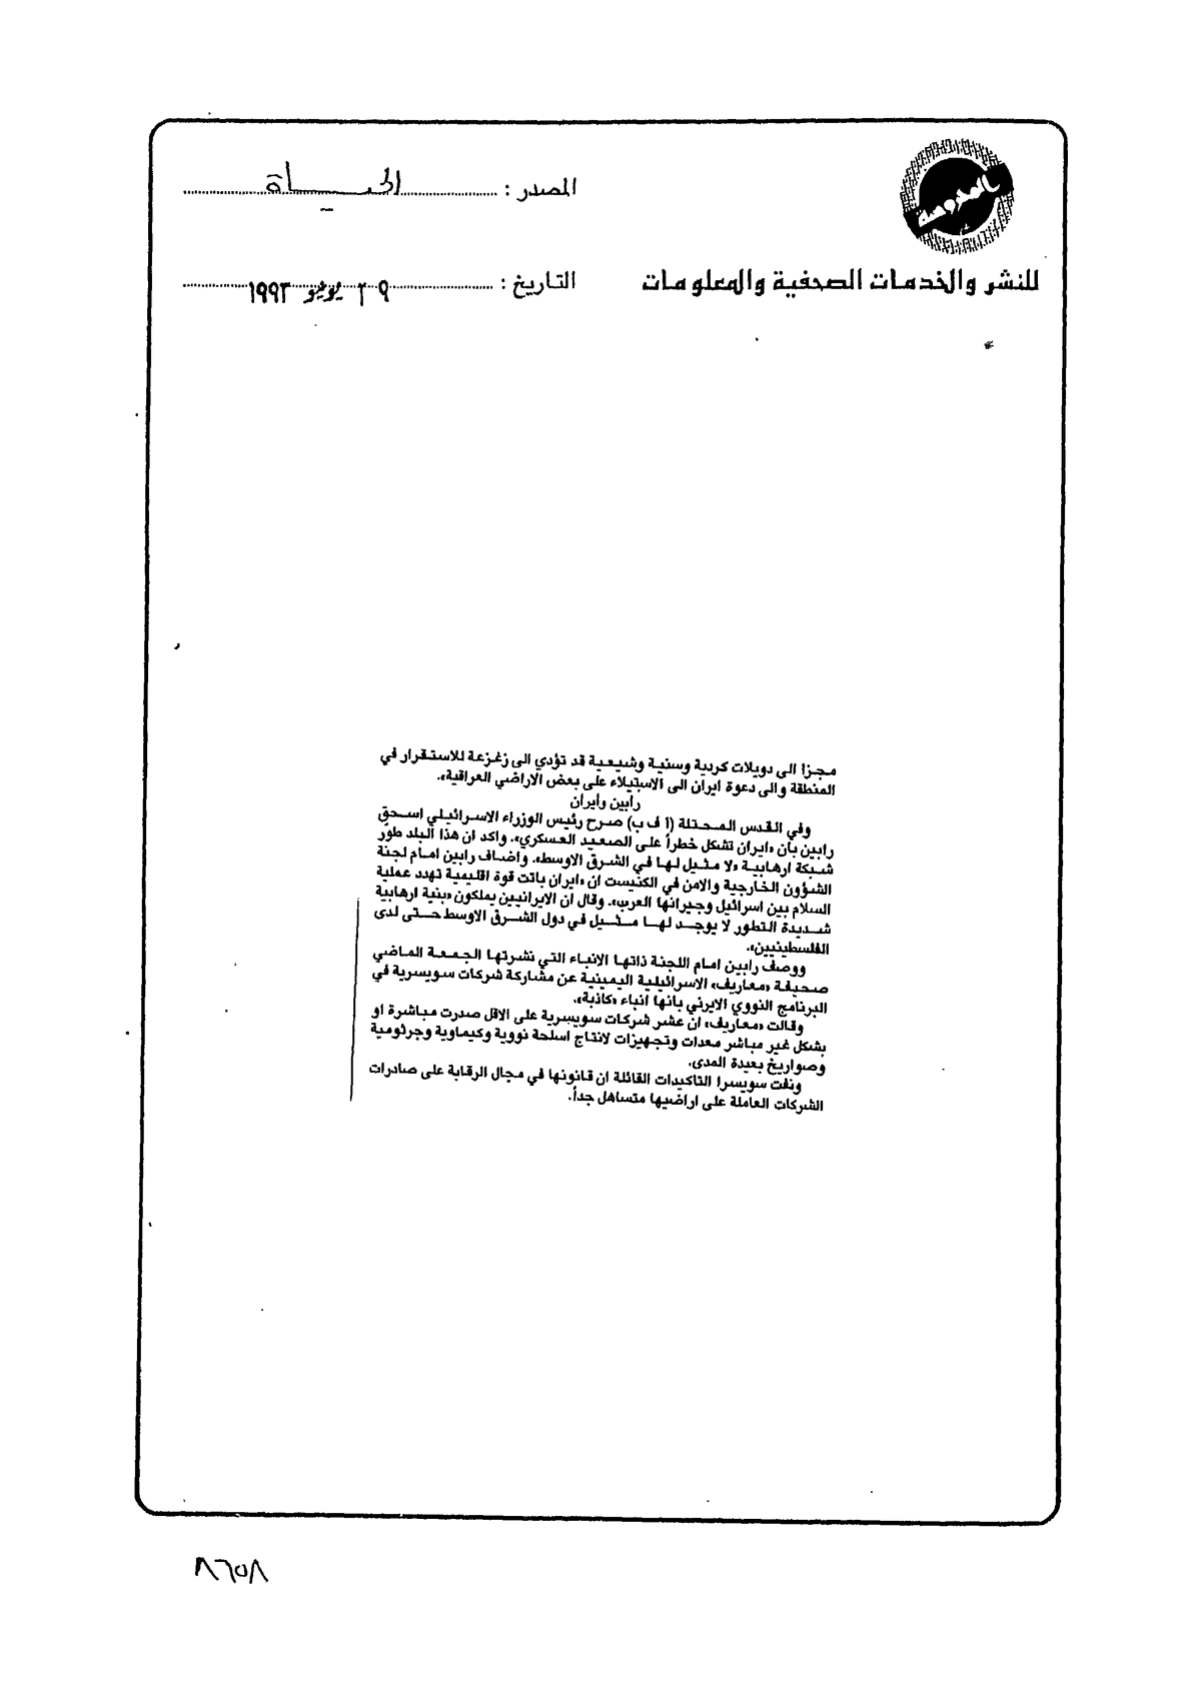 المصدر : الحياة
للنشر والخدمات الصحفية والمعلومات
التاريخ : ٢٩ يونيو ١٩٩٣
مجزا الى دويلات كردية وسنية وشيعية قد تؤدي الى زغزعة للاستقرار في
المنطقة والى دعوة ايران الى الاستيلاء على بعض الاراضي العراقية».
رابين وايران
وفي القدس المحتلة (ا ف ب) صرح رئيس الوزراء الاسرائيلي اسحق
رابين بان «ايران تشكل خطراً على الصعيد العسكري». واكد ان هذا البلد طور
شبكة ارهابية «لا مثيل لها في الشرق الاوسط». واضاف رابين امام لجنة
الشؤون الخارجية والامن في الكنيست ان «ايران باتت قوة اقليمية تهدد عملية
السلام بين اسرائيل وجيرانها العرب». وقال ان الايرانيين يملكون «بنية ارهابية
شديدة التطور لا يوجد لها مثيل في دول الشرق الاوسط حتى لدى
الفلسطينيين».
ووصف رابين امام اللجنة ذاتها الانباء التي نشرتها الجمعة الماضي
صحيفة «معاريف» الاسرائيلية اليمينية عن مشاركة شركات سويسرية في
البرنامج النووي الايرني بانها انباء «كاذبة».
وقالت «معاريف» ان عشر شركات سويسرية على الاقل صدرت مباشرة او
بشكل غير مباشر معدات وتجهيزات لانتاج اسلحة نووية وكيماوية وجرثومية
وصواريخ بعيدة المدى.
ونفت سويسرا التاكيدات القائلة ان قانونها في مجال الرقابة على صادرات
الشركات العاملة على اراضيها متساهل جداً.
٨٦٥٨